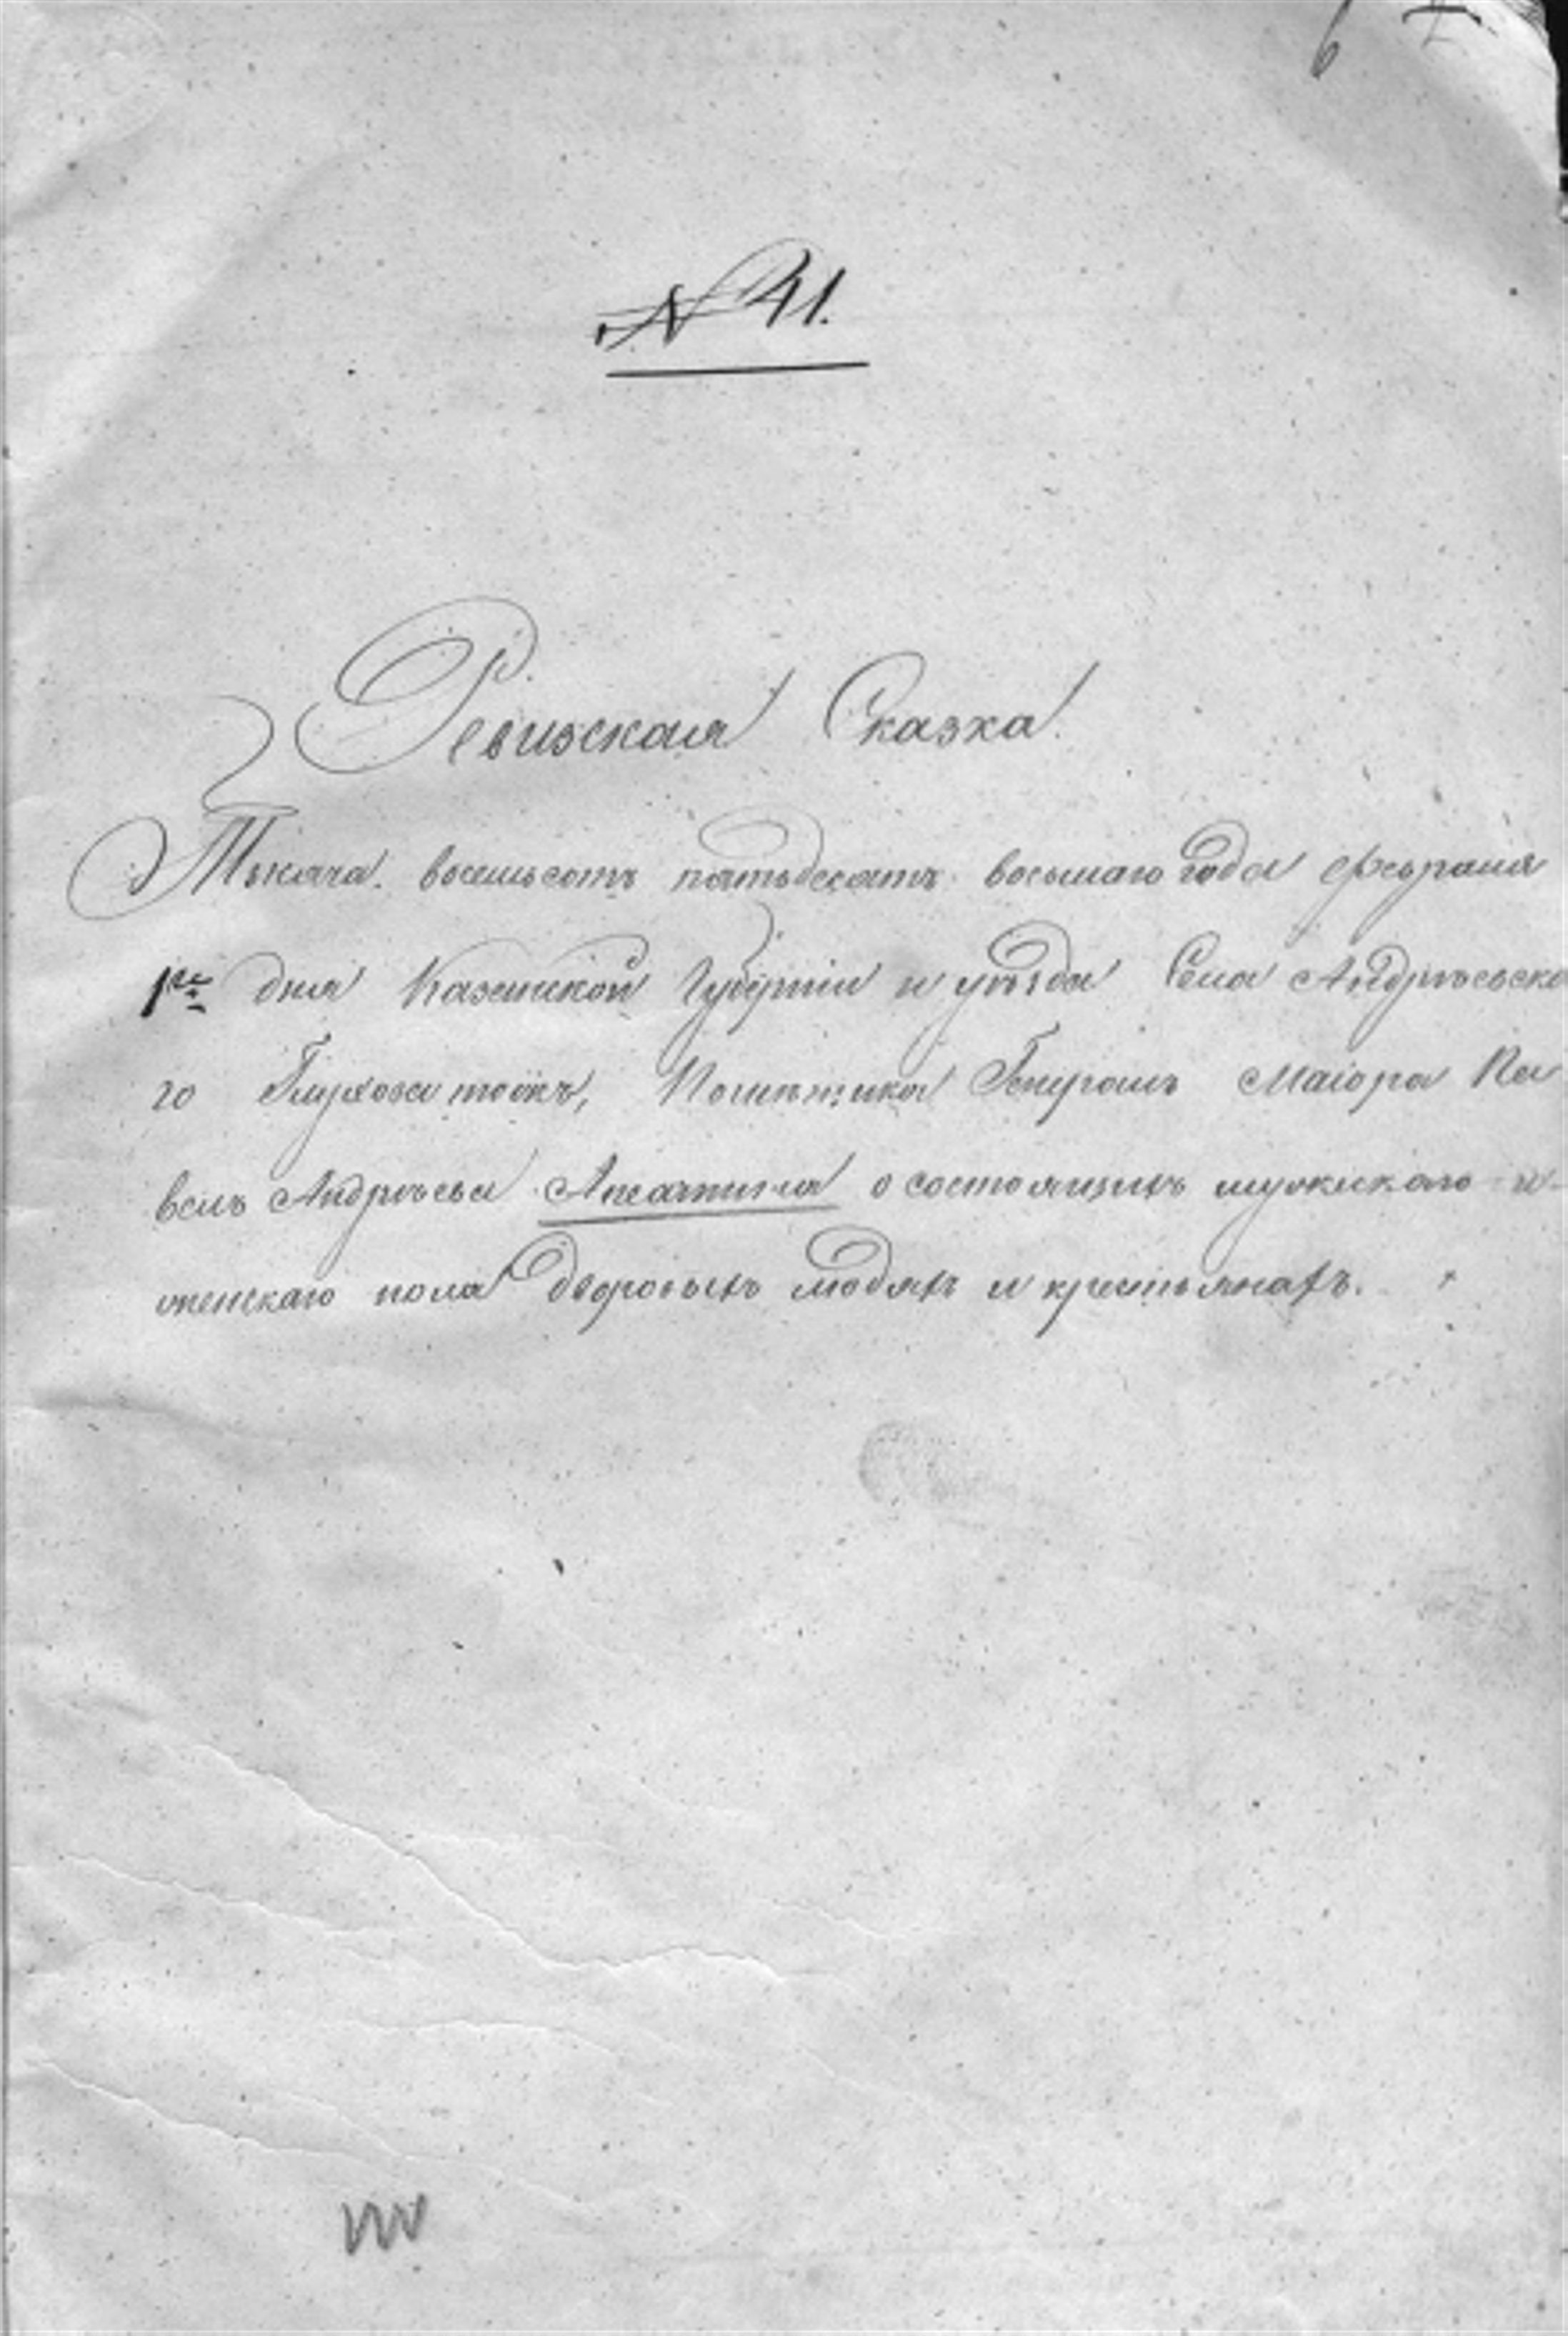 6
№ 41.
Ревизская Сказка.
Тысяча восемьсотъ пятьдесятъ восьмаго года февраля
1го дня Казанской Губерніи и уѣзда Села Андрѣевска
го тожъ, Помѣщика Генералъ Маіора Па
велъ Андрѣева о состоящихъ мужскаго и
женскаго пола дворовыхъ людяхъ и крестьянахъ.